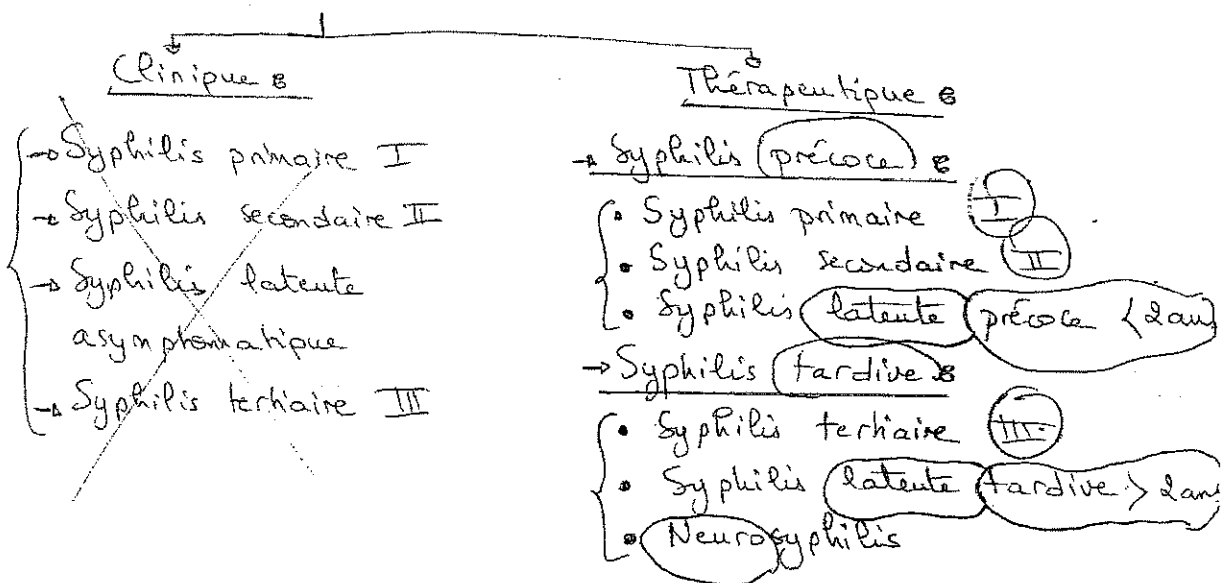 Clinique :
→ Syphilis primaire I
→ Syphilis secondaire II
→ Syphilis latente
asymptomatique
→ Syphilis tertiaire III
Thérapeutique :
→ Syphilis précoce :
• Syphilis primaire I
• Syphilis secondaire II
• Syphilis latente précoce < 2 ans
→ Syphilis tardive :
• Syphilis tertiaire III
• Syphilis latente tardive > 2 ans
• Neurosyphilis